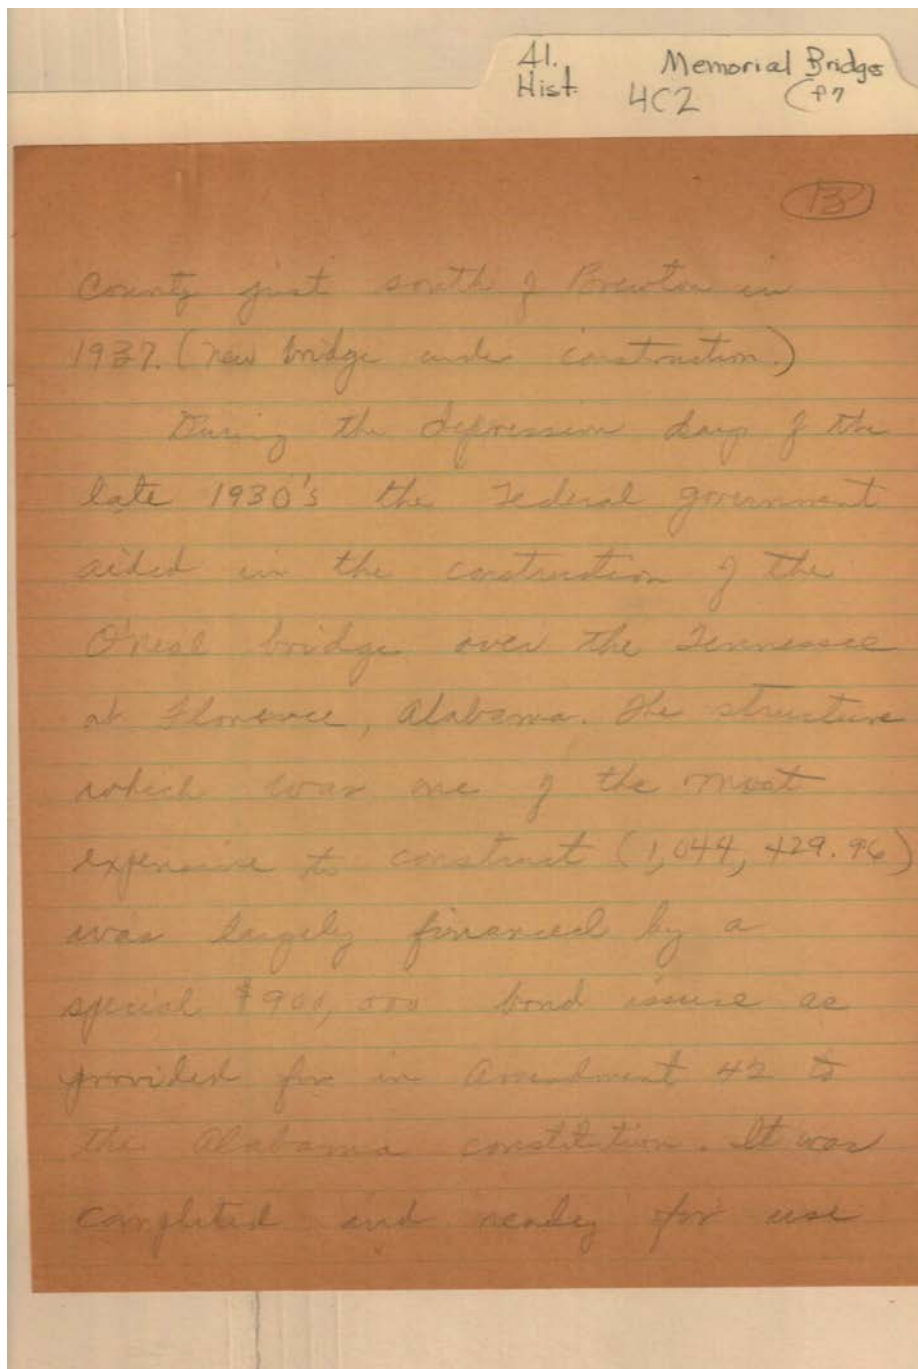 Al. Memorial Bridges
Hist. 4C2 (P7
13
County just south of Brewton in
1937. (new bridge under construction.)
During the depression days of the
late 1930's the Federal government
aided in the construction of the
O'Neal bridge over the Tennessee
at Florence, Alabama. The structure
which was one of the most
expensive to construct (1,044,429.96)
was largely financed by a
special $900,000 bond issuse as
provided for in Amendment 42 to
the Alabama constitution. It was
completed and ready for use